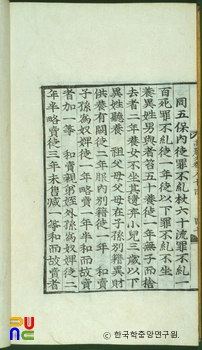 同五保內徒罪不糺杖六十流罪不糺一
百死罪不糺徒一年徒以下罪不糺不坐
養異姓男與者笞五十養徒一年無子而捨
去者二年養女不坐其遺弃小兒三歲以下
異姓聽養 祖父母父母在子孫別籍異財
供養有闕徒二年服內別籍徒一年 略賣
子孫爲奴婢徒一年半和而故賣
者加一等 和賣親弟姪外孫爲奴婢徒二
年半略賣徒三年未售減一等和而故賣者
한국학중앙연구원